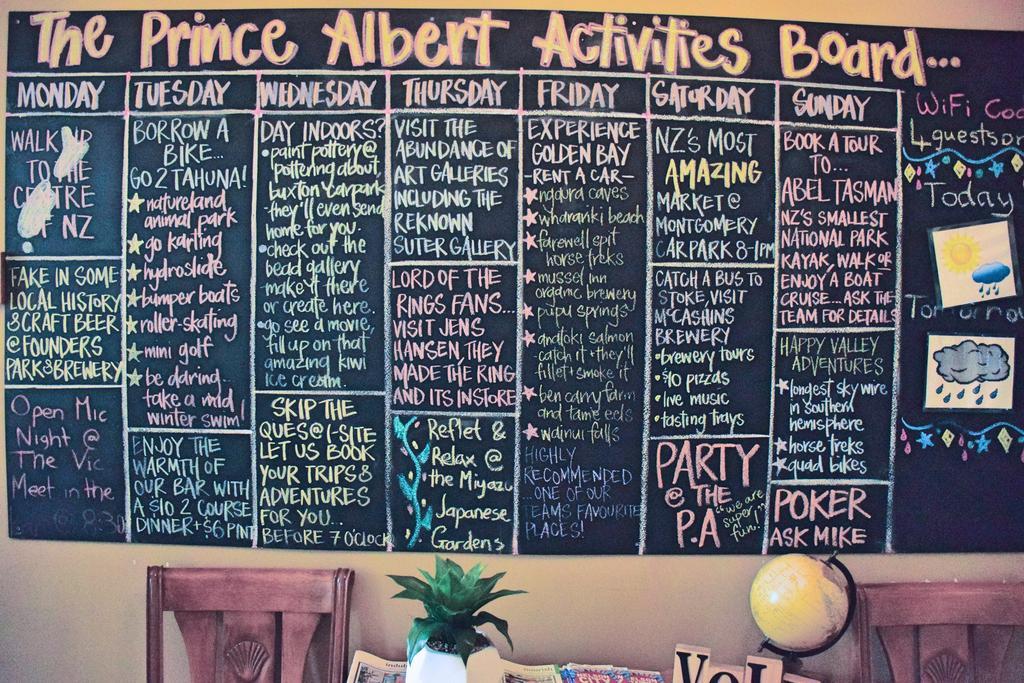 The Prince Albert Activities Board...
MONDAY
WALK UP
TO THE
CENTRE
OF NZ
TAKE IN SOME
LOCAL HISTORY
& CRAFT BEER
@ FOUNDERS
PARK & BREWERY
Open Mic
Night @
The Vic
Meet in the
TUESDAY
BORROW A
BIKE...
GO 2 TAHUNA!
natureland
animal park
go karting
hydroslide
bumper boats
roller-skating
mini golf
be daring...
take a mid
winter swim!
ENJOY THE
WARMTH OF
OUR BAR WITH
A $10 2 COURSE
DINNER + $6 PINT
WEDNESDAY
DAY INDOORS?
• paint pottery @
pottering about
buxton carpark
they'll even send
home for you.
• check out the
bead gallery
make it there
or create here.
• go see a movie,
fill up on that
amazing kiwi
ice cream.
SKIP THE
QUES @ I-SITE
LET US BOOK
YOUR TRIPS &
ADVENTURES
FOR YOU...
BEFORE 7 O'CLOCK
THURSDAY
VISIT THE
ABUNDANCE OF
ART GALLERIES
INCLUDING THE
REKNOWN
SUTER GALLERY
LORD OF THE
RINGS FANS...
VISIT JENS
HANSEN, THEY
MADE THE RING
AND ITS INSTORE
Reflet &
Relax @
the Miyazu
Japanese
Gardens
FRIDAY
EXPERIENCE
GOLDEN BAY
-RENT A CAR-
ngarua caves
wharariki beach
farewell spit
horse treks
mussel inn
organic brewery
pupu springs
anatoki salmon
-catch it + they'll
fillet + smoke it
ben carry farm
and tame eels
wainui falls
HIGHLY
RECOMMENDED
...ONE OF OUR
TEAMS FAVOURITE
PLACES!
SATURDAY
NZ'S MOST
AMAZING
MARKET @
MONTGOMERY
CAR PARK 8-1PM
CATCH A BUS TO
STOKE, VISIT
McCASHINS
BREWERY
• brewery tours
• $10 pizzas
• live music
• tasting trays
PARTY
@ THE
P.A "we are
super
fun."
SUNDAY
BOOK A TOUR
TO...
ABEL TASMAN
NZ'S SMALLEST
NATIONAL PARK
KAYAK, WALK OR
ENJOY A BOAT
CRUISE... ASK THE
TEAM FOR DETAILS
HAPPY VALLEY
ADVENTURES
longest sky wire
in southern
hemisphere
horse treks
quad bikes
POKER
ASK MIKE
WiFi Cod
4 guests on
Today
Tomorrow